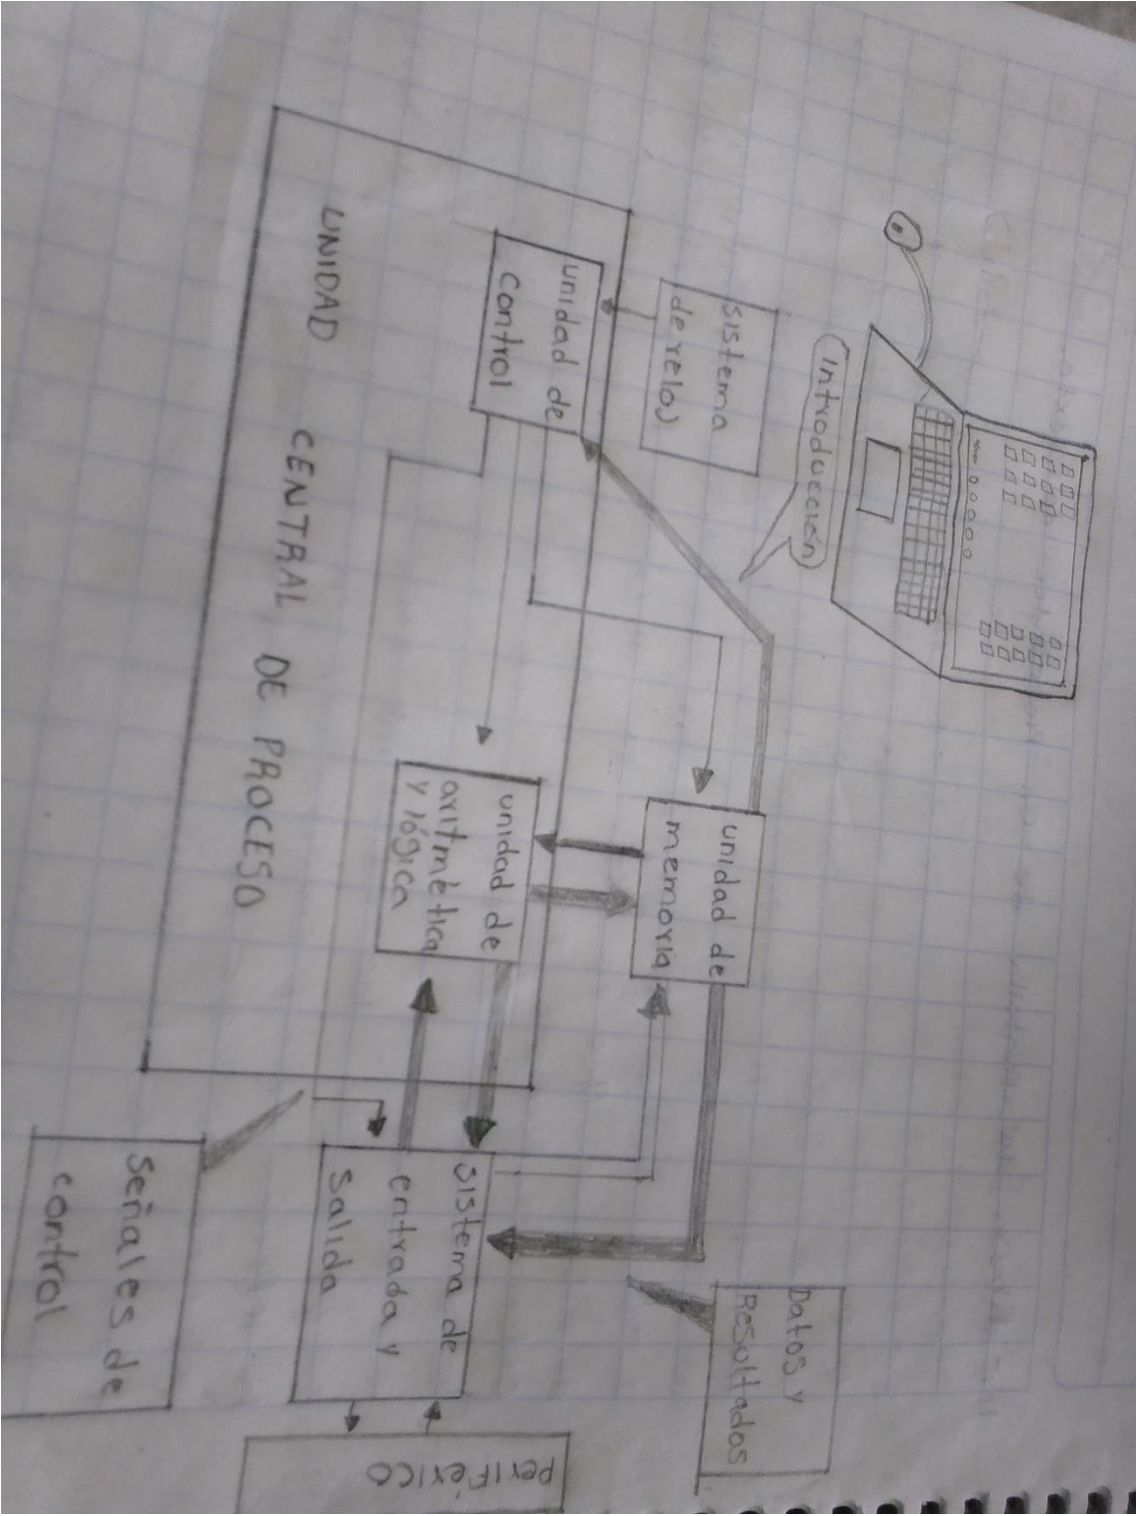 Introducción
Sistema
de reloj
unidad de
control
unidad de
memoria
unidad de
aritmètica
y lógica
UNIDAD CENTRAL DE PROCESO
Datos y
Resultados
Sistema de
entrada y
Salida
Periférico
Señales de
control